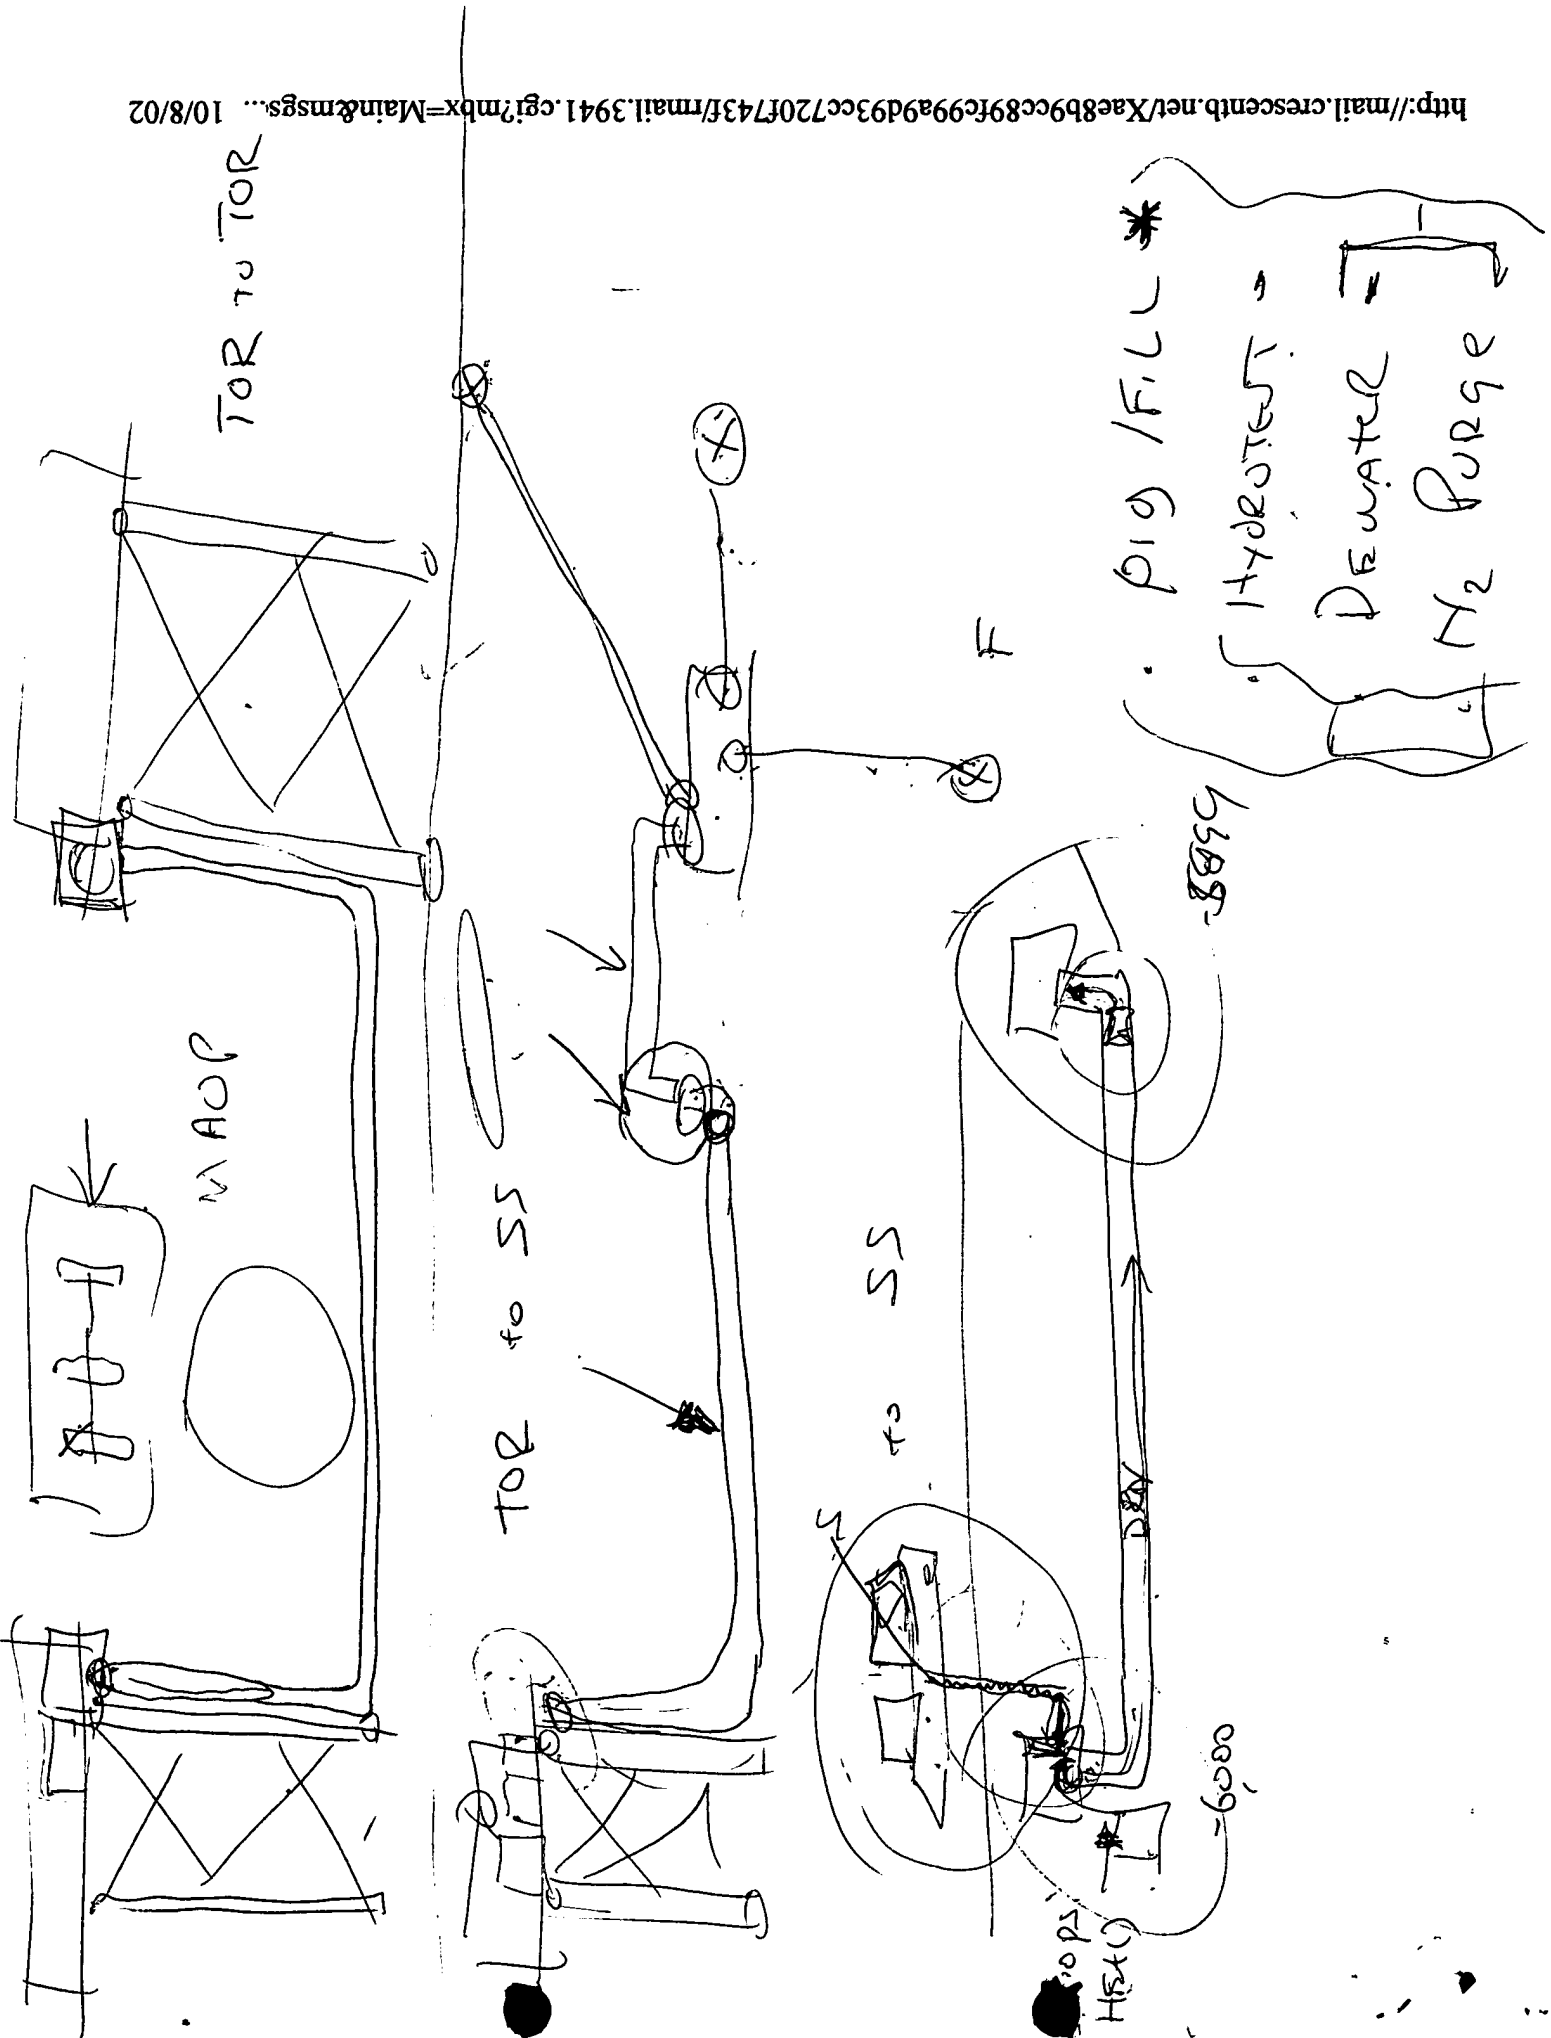 http://mail.crescentb.net/Xae8b9cc89fc99a9d93cc720f743f/rmail.3941.cgi?mbx=Main&msgs... 10/8/02
TOR TO TOR
MAOP
TOR to SS
SS to SS
F
pig / FILL *
HYDROTEST
DEWATER
N2 PURGE
-6,000